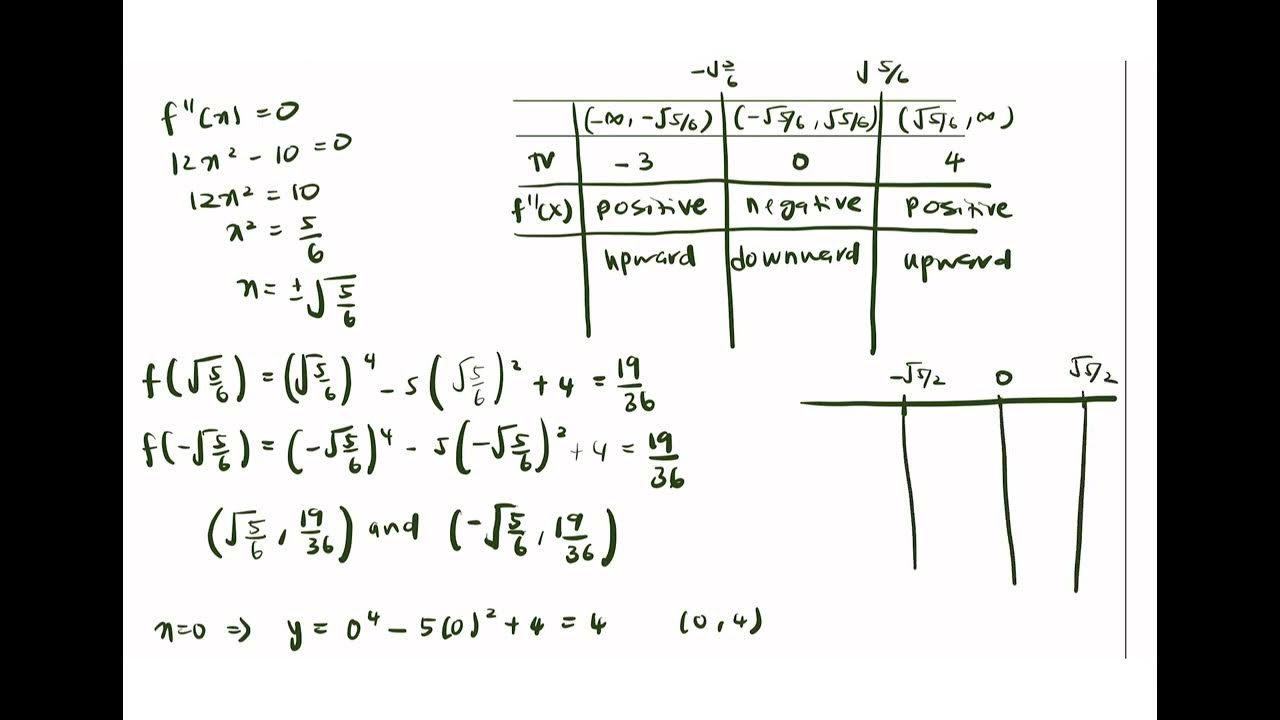 f''(x) = 0
12x² - 10 = 0
12x² = 10
x² = 5/6
x = ±√5/6
-√5/6 √5/6
(-∞, -√5/6) (-√5/6, √5/6) (√5/6, ∞)
TV -3 0 4
f''(x) positive negative positive
upward downward upward
f(√5/6) = (√5/6)⁴ - 5(√5/6)² + 4 = 19/36
f(-√5/6) = (-√5/6)⁴ - 5(-√5/6)² + 4 = 19/36
(√5/6, 19/36) and (-√5/6, 19/36)
-√5/2 0 √5/2
x=0 ⇒ y = 0⁴ - 5(0)² + 4 = 4 (0, 4)